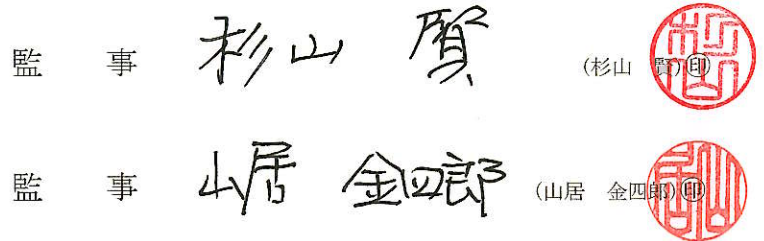 監 事 杉山 賢 (杉山 賢)㊞
監 事 山居 金四郎 (山居 金四郎)㊞